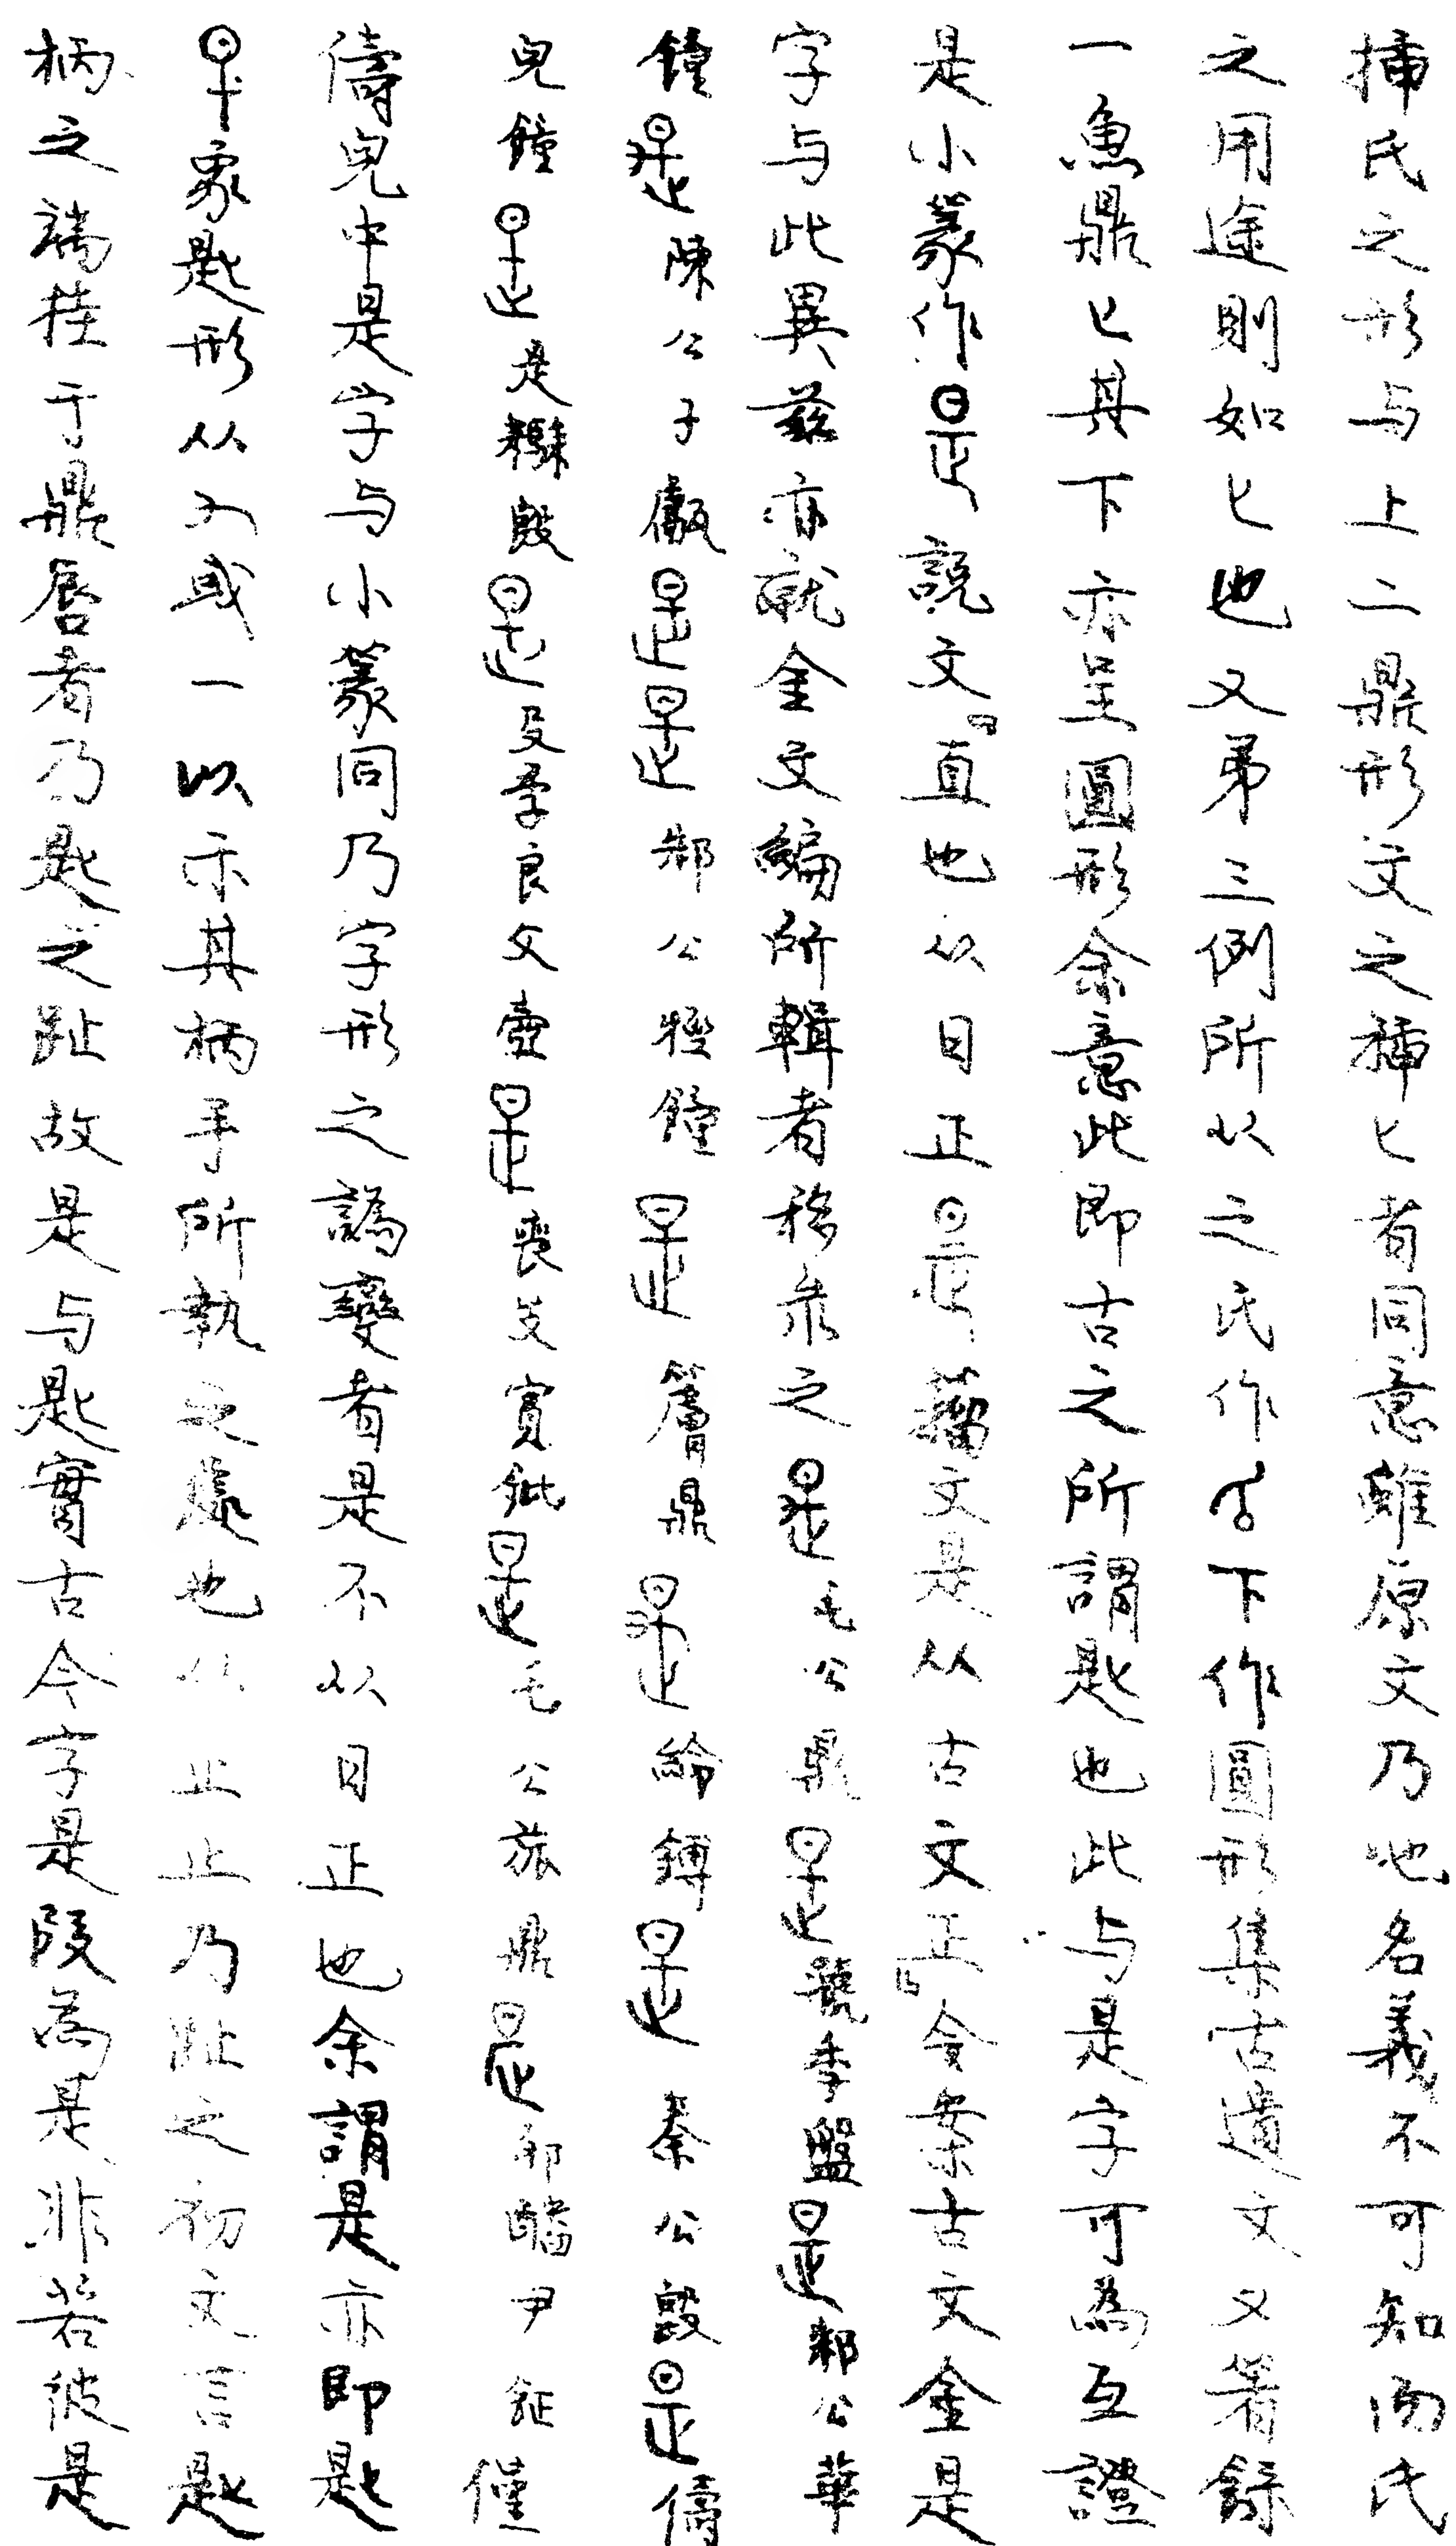 插氏之形与上二鼎形文之插匕者同意雖原文乃地名義不可知而氏
之用途則如匕也又弟三例所从之氏作下作圓形集古遺文又著錄
一魚鼎匕其下亦呈圓形余意此即古之所謂匙也此与是字可為互證
是小篆作是說文曰直也从日正是籀文是从古文正今案古文金是
字与此異茲亦就金文編所輯者移录之是毛公鼎是虢季盤是邾公華
鐘是陳公子甗是是邾公牼鐘是簷鼎是綸鎛是秦公𣪘是儔
兒鐘是是𣪘是及季良父壺是喪史賓鈚是毛公旅鼎是尹鉦僅
儔兒中是字与小篆同乃字形之譌變者是不从日正也余謂是亦即匙
象匙形从又或一以示其柄手所執之處也从止止乃趾之初文言匙
柄之端挂于鼎唇者乃匙之趾故是与匙實古今字是段為是非若彼是